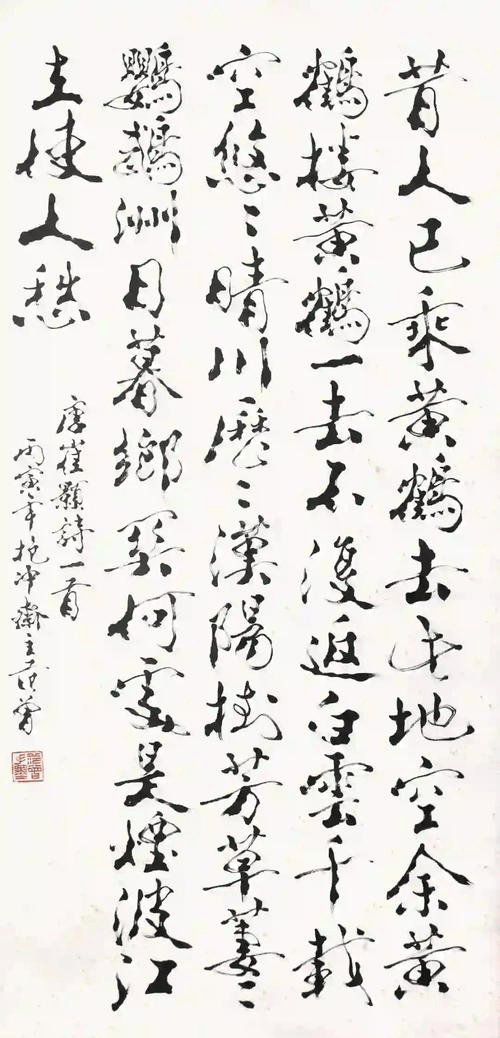 昔人已乘黄鹤去此地空余黄
鹤楼黄鹤一去不復返白雲千載
空悠〻晴川歷〻漢陽樹芳草萋〻
鹦鹉洲日暮鄉關何處是煙波江
上使人愁
唐崔顥詩一首
丙寅年抱沖齋主范曾